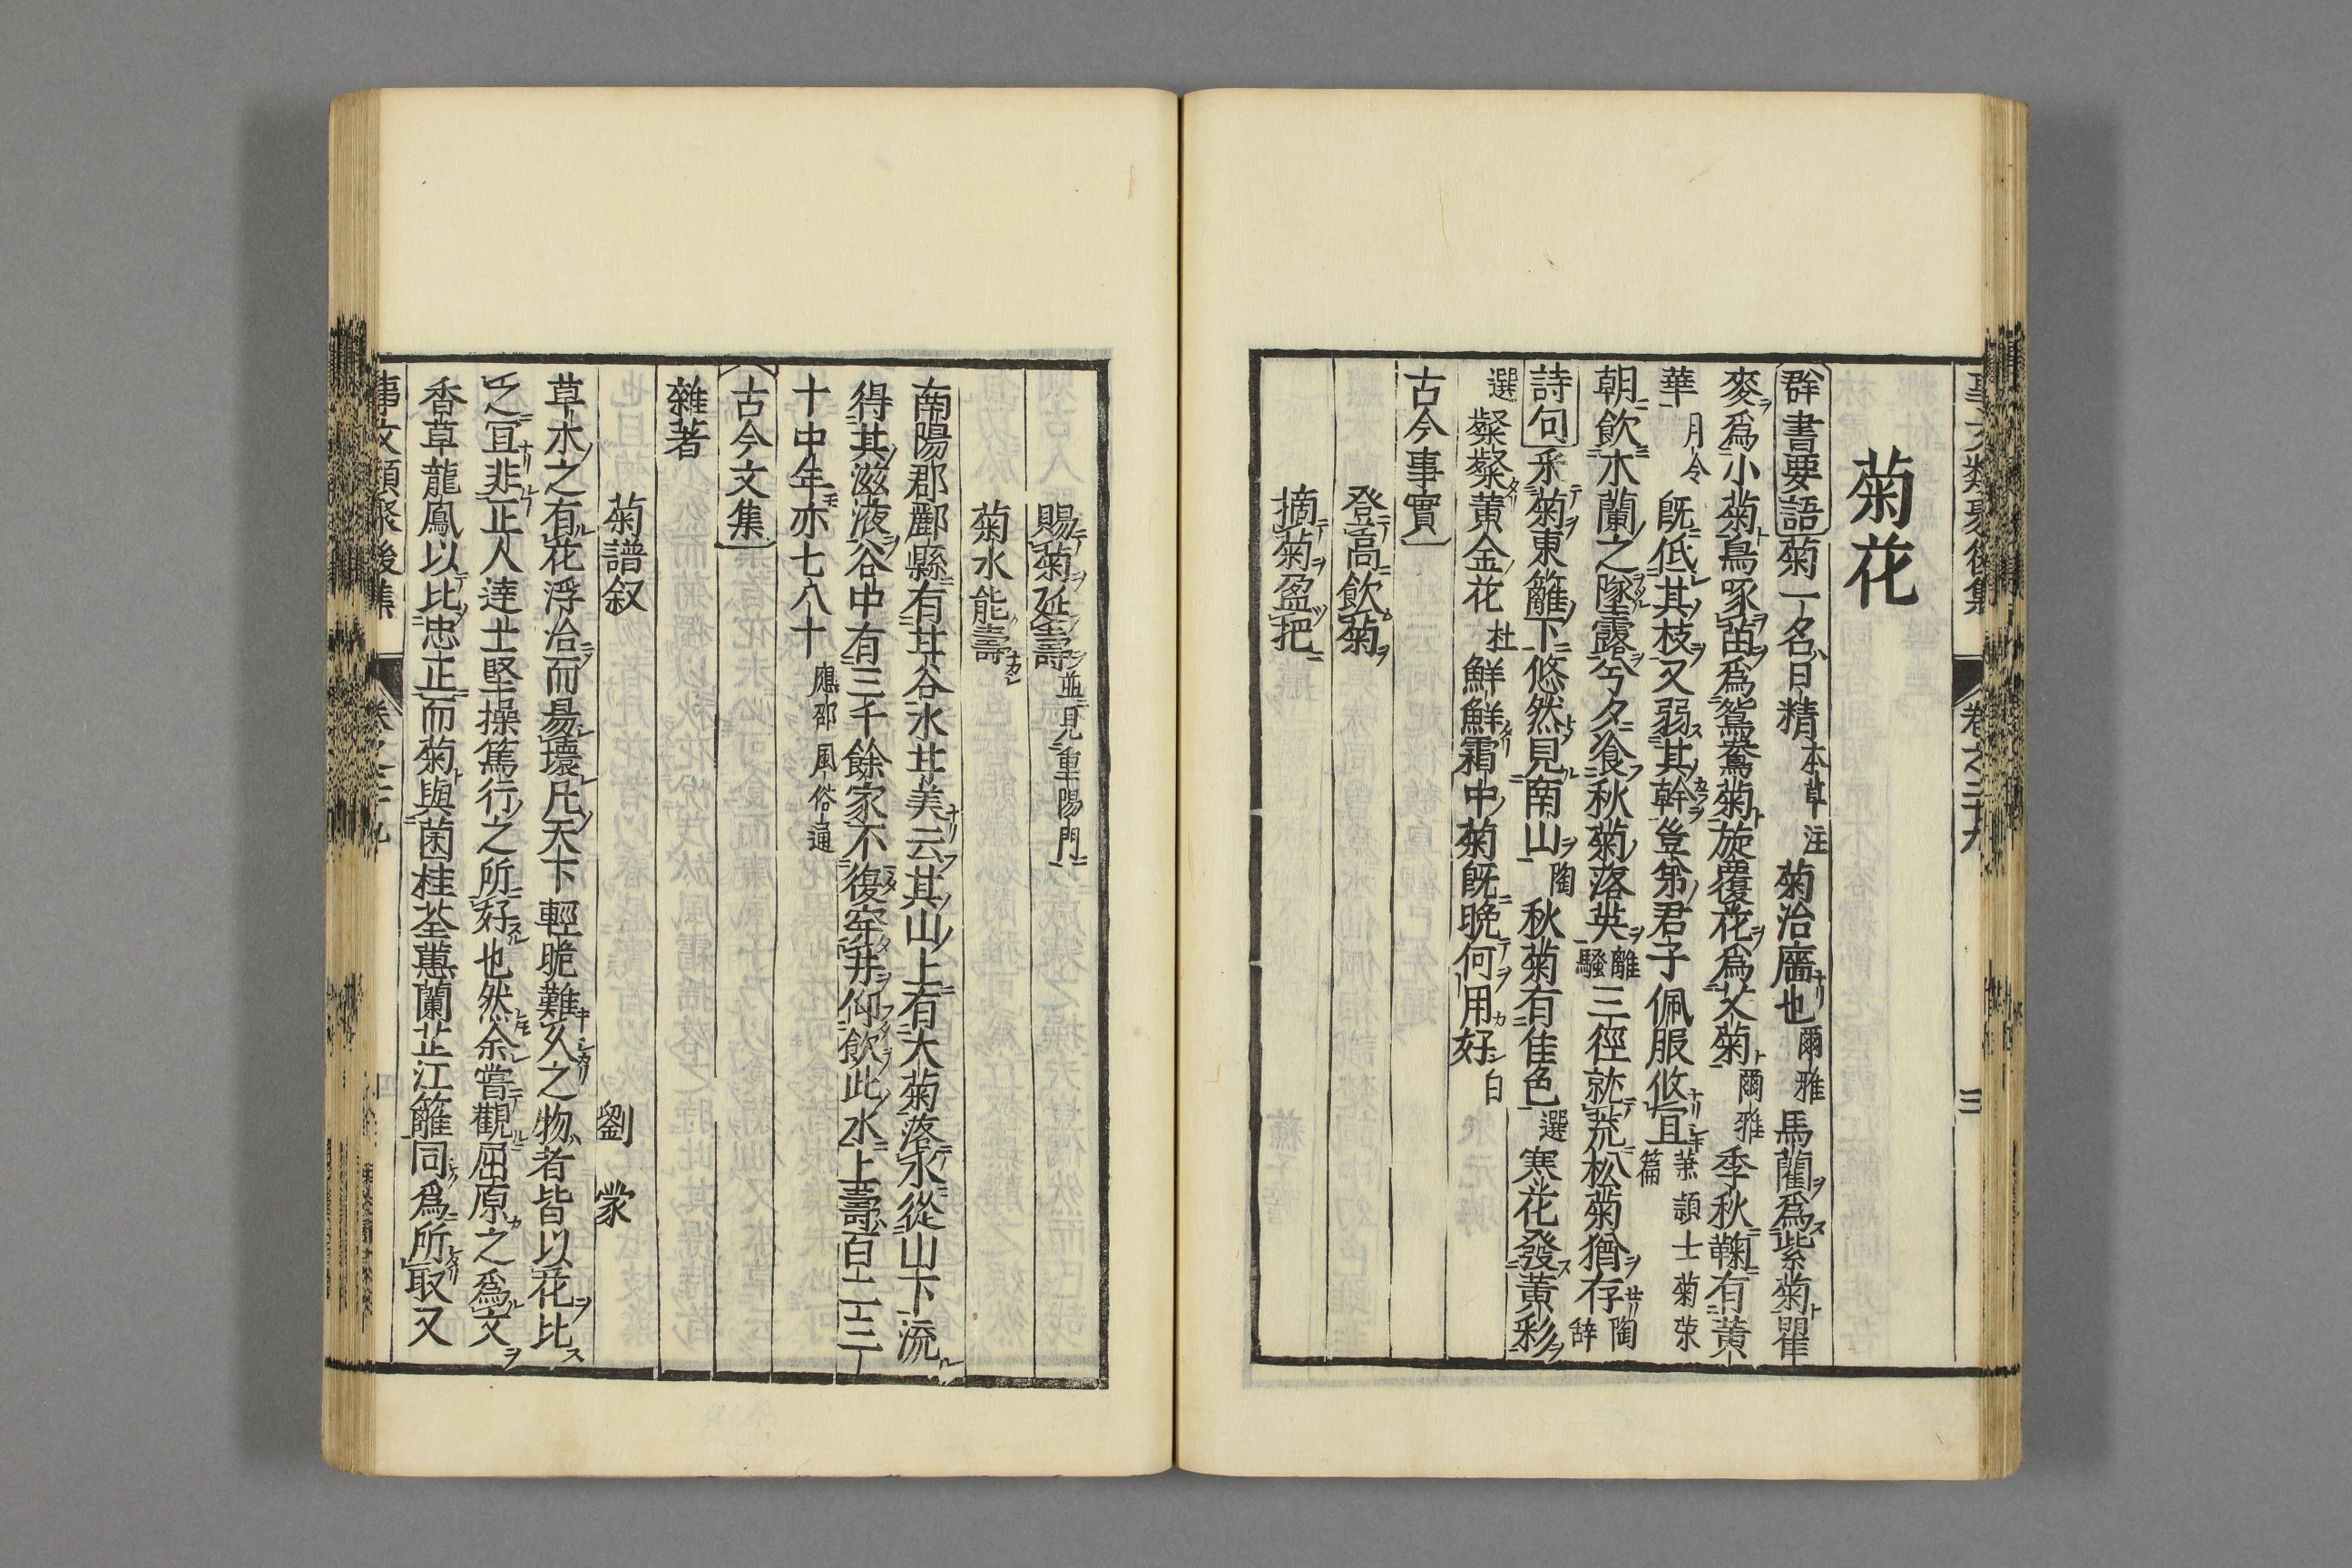 菊花
群書要語菊一名日精本草注菊治廧也爾雅馬藺爲紫菊瞿
麥爲小菊鳥啄苗爲鴛鴦菊旋覆花爲艾菊爾雅季秋鞠有黄
華月令旣低其枝又弱其幹豈第君子佩服攸宜蕭頴士菊榮篇
朝飲木蘭之墜露兮夕湌秋菊落英離騷三徑就荒松菊猶存陶辞
詩句采菊東籬下悠然見南山陶秋菊有佳色選寒花發黄彩
選粲粲黄金花杜鮮鮮霜中菊旣晚何用好白
古今事實
登高飲菊
摘菊盈把
賜菊延壽並見重陽門
菊水能壽
南陽郡酈縣有甘谷水甘美云其山上有大菊落水從山下流
得其滋液谷中有三千餘家不復穿井仰飲此水上壽百二三
十中年亦七八十應邵風俗通
古今文集
雜著
菊譜叙 劉蒙
草木之有花浮冶而易壞凡天下輕脆難久之物者皆以花比
之宜非正人達士堅操篤行之所好也然余嘗觀屈原之爲文
香草龍鳳以比忠正而菊與菌桂荃蕙蘭芷江籬同爲所取又
事文類聚後集 卷之二十九